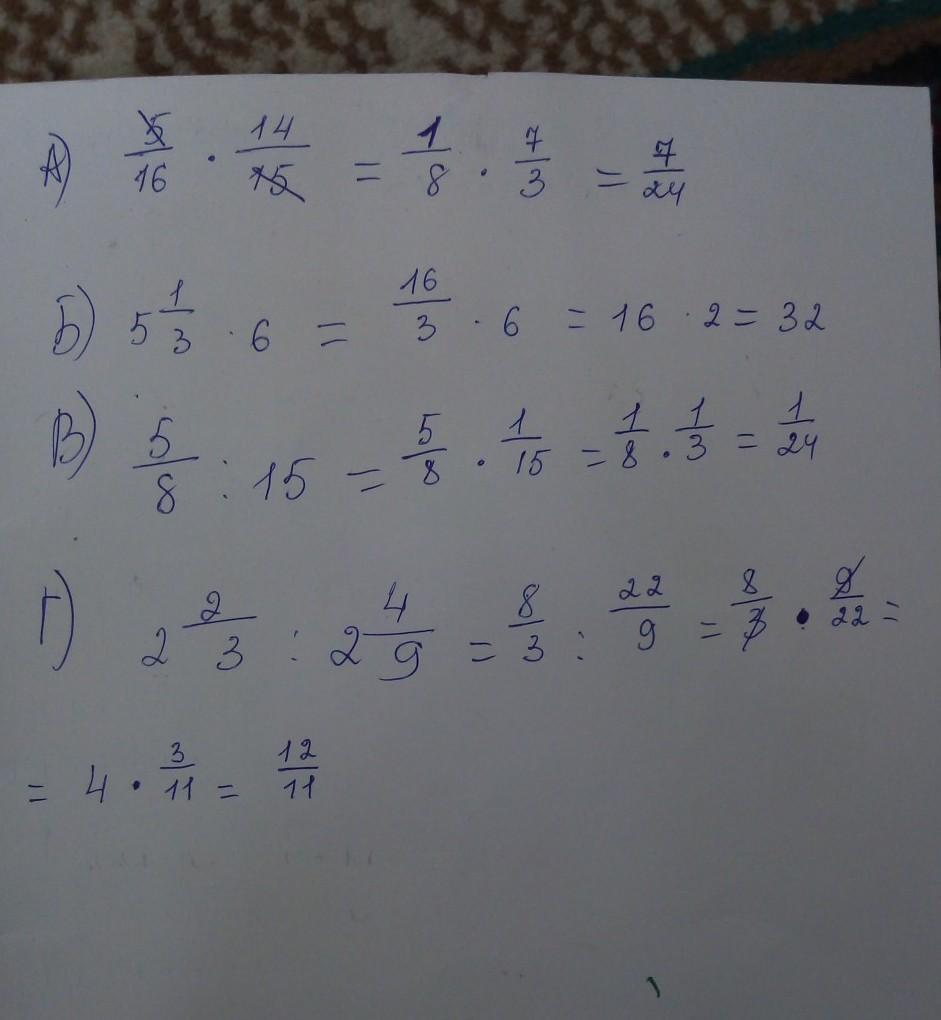 А) 5/16 · 14/15 = 1/8 · 7/3 = 7/24
Б) 5 1/3 · 6 = 16/3 · 6 = 16 · 2 = 32
В) 5/8 : 15 = 5/8 · 1/15 = 1/8 · 1/3 = 1/24
Г) 2 2/3 : 2 4/9 = 8/3 : 22/9 = 8/3 · 9/22 =
= 4 · 3/11 = 12/11